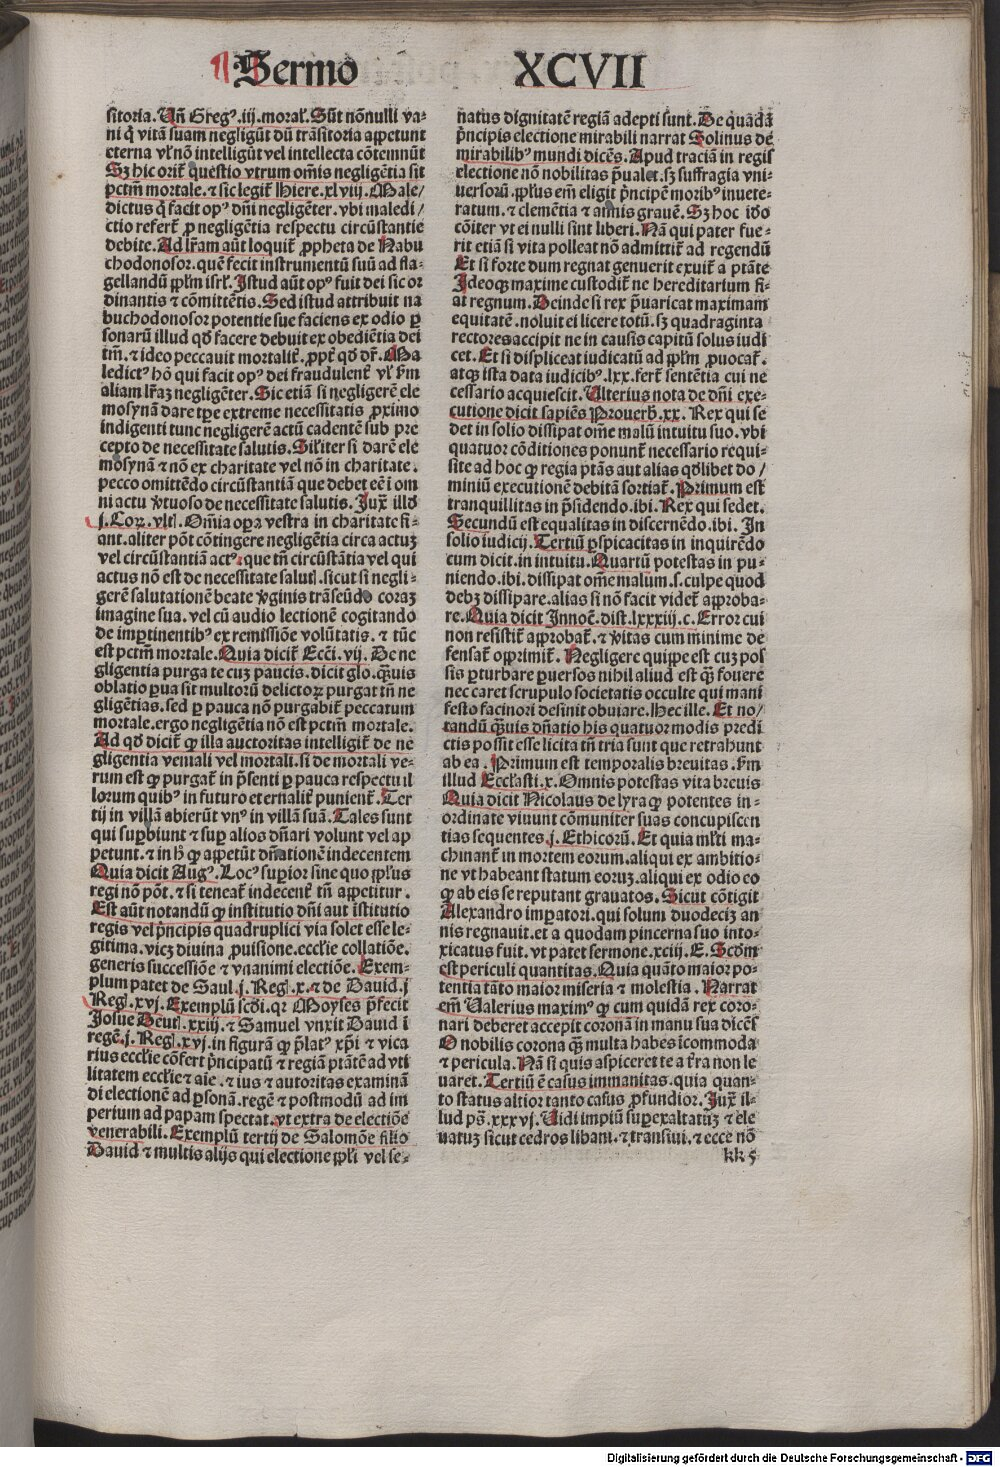 ¶ Sermo XCVII
sitoria. Vñ Gregꝰ.iij.moral̃. Sũt nõnulli va⸗
ni q̃ vitã suam negligũt dũ trãsitoria appetunt
eterna vl̃ nõ intelligũt vel intellecta cõtemnũt
Sꝫ hic orit̃ questio vtrum om̃is negligẽtia sit
pctm̃ mortale. ⁊ sic legit̃ Hiere.xlviij. Male/
dictus q̃ facit opꝰ dñi negligẽter. vbi maledi/
ctio refert̃ ꝓ negligẽtia respectu circũstantie
debite. Ad lr̃am aũt loquit̃ ꝓpheta de Nabu
chodonosor. quẽ fecit instrumentũ suũ ad fla⸗
gellandũ ppl̃m isrl̃. Istud aũt opꝰ fuit dei sic or
dinantis ⁊ cõmittẽtis. Sed istud attribuit na
buchodonosor potentie sue faciens ex odio ꝑ
sonarũ illud qd̃ facere debuit ex obediẽtia dei
tm̃. ⁊ ideo peccauit mortalit̃. ꝓpt̃ qd̃ dr̃. Ma
ledictꝰ hõ qui facit opꝰ dei fraudulent̃ vl̃ ẜm
aliam lr̃aꝫ negligẽter. Sic etiã si negligerẽ ele
mosynã dare tꝑe extreme necessitatis ꝓximo
indigenti tunc negligerẽ actũ cadentẽ sub pre
cepto de necessitate salutis. Sil̃iter si darẽ ele
mosynã ⁊ nõ ex charitate vel nõ in charitate.
pecco omittẽdo circũstantiã que debet eẽ ĩ om
ni actu ṽtuoso de necessitate salutis. Jux̃ illd̃
j. Coꝝ. vlt. Om̃ia oꝑa vestra in charitate fi⸗
ant. aliter põt cõtingere negligẽtia circa actuꝫ
vel circũstantiã actꝰ. que tñ circũstãtia vel qui
actus nõ est de necessitate salut. sicut si negli⸗
gerẽ salutationẽ beate ṽginis trãseũdo coraꝫ
imagine sua. vel cũ audio lectionẽ cogitando
de imꝑtinentibꝰ ex remissiõe volũtatis. ⁊ tũc
est pctm̃ mortale. Quia dicit̃ Ecci. vij. De ne
gligentia purga te cuꝫ paucis. dicit glo. q̃uis
oblatio ꝑua sit multorũ delictoꝝ purgat tñ ne
gligẽtias. sed ꝑ pauca nõ purgabit̃ peccatum
mortale. ergo negligẽtia nõ est pctm̃ mortale.
Ad qd̃ dicit̃ ꝙ illa auctoritas intelligit̃ de ne
gligentia veniali vel mortali. si de mortali ve⸗
rum est ꝙ purgat̃ in p̃senti ꝑ pauca respectu il
lorum quibꝰ in futuro eternalit̃ punient̃. Ter
tij in villã abierũt vnꝰ in villã suã. Tales sunt
qui suꝑbiunt ⁊ suꝑ alios dñari volunt vel ap
petunt. ⁊ in hͦ ꝙ appetũt dñationẽ indecentem
Quia dicit Augꝰ. Locꝰ suꝑior sine quo ppl̃us
regi nõ põt. ⁊ si teneat̃ indecent̃ tñ appetitur.
Est aũt notandũ ꝙ institutio dñi aut ĩstitutio
regis vel p̃ncipis quadruplici via solet esse le⸗
gitima. viꝫ diuina ꝓuisione. eccl̃ie collatiõe.
generis successiõe ⁊ vnanimi electiõe. Exem⸗
plum patet de Saul. j. Reg. x. ⁊ de Dauid. j
Reg. xvj. Exemplũ scd̃i. qr Moyses p̃fecit
Josue Deut. xxiij. ⁊ Samuel vnxit Dauid ĩ
regẽ. j. Reg. xvj. in figurã ꝙ p̃latꝰ xp̃i ⁊ vica
rius eccl̃ie cõfert p̃ncipatũ ⁊ regiã ptãtẽ ad vti
litatem eccl̃ie ⁊ aĩe. ⁊ ius ⁊ autoritas examinã
di electionẽ ad ꝑsonã. regẽ ⁊ postmodũ ad im
perium ad papam spectat. vt extra de electiõe
venerabili. Exemplũ tertij de Salomõe filio
Dauid ⁊ multis alijs qui electione ppl̃i vel se⸗
natus dignitatẽ regiã adepti sunt. De quadã
p̃ncipis electione mirabili narrat Solinus de
mirabilibꝰ mundi dicẽs. Apud traciã in regis
electione nõ nobilitas p̃ualet. sꝫ suffragia vni⸗
uersorũ. ppl̃us em̃ eligit p̃ncipẽ moribꝰ inuete⸗
ratum. ⁊ clemẽtia ⁊ annis grauẽ. Sꝫ hoc iõo
cõiter vt ei nulli sint liberi. Nã qui pater fue⸗
rit etiã si vita polleat nõ admittit̃ ad regendũ
Et si forte dum regnat genuerit exuit̃ a ptãte
Ideoqꝫ maxime custodit̃ ne hereditarium fi⸗
at regnum. Deinde si rex p̃uaricat maximam
equitatẽ. noluit ei licere totũ. sꝫ quadraginta
rectores accipit ne in causis capitũ solus iudi
cet. Et si displiceat iudicatũ ad ppl̃m ꝓuocat̃.
atqꝫ ista data iudicibꝰ. lxx. fert̃ sentẽtia cui ne
cessario acquiescit. Vlterius nota de dñi exe⸗
cutione dicit sapiẽs Prouerb̃. xx. Rex qui se
det in solio dissipat om̃e malũ intuitu suo. vbi
quatuor cõditiones ponunt̃ necessario requi⸗
site ad hoc ꝙ regia ptãs aut alias qd̃libet do/
miniũ executionẽ debitã sortiat̃. Primum est
tranquillitas in p̃sidendo. ibi. Rex qui sedet.
Secundũ est equalitas in discernẽdo. ibi. In
solio iudicij. Tertiũ ꝑspicacitas in inquirẽdo
cum dicit. in intuitu. Quartũ potestas in pu⸗
niendo. ibi. dissipat om̃e malum. s. culpe quod
debꝫ dissipare. alias si nõ facit videt̃ approba⸗
re. Quia dicit Innoc̃. dist. lxxxiij. c. Error cui
non resistit̃ approbat̃. ⁊ ṽitas cum minime de
fensat̃ opprimit̃. Negligere quippe est cuꝫ pos
sis ꝑturbare ꝑuersos nihil aliud est q̃ fouere
nec caret scrupulo societatis occulte qui mani
festo facinori desinit obuiare. Hec ille. Et no/
tandũ q̃uis dñatio his quatuor modis predi
ctis possit esse licita tñ tria sunt que retrahunt
ab ea. Primum est temporalis breuitas. ẜm
illud Eccl̃asti. x. Omnis potestas vita breuis
Quia dicit Nicolaus de lyra ꝙ potentes in⸗
ordinate viuunt cõmuniter suas concupiscen
tias sequentes. j. Ethicorũ. Et quia ml̃ti ma⸗
chinant̃ in mortem eorum. aliqui ex ambitio⸗
ne vt habeant statum eoruꝫ. aliqui ex odio eo
ꝙ ab eis se reputant grauatos. Sicut cõtigit
Alexandro imꝑatori. qui solum duodeciꝫ an
nis regnauit. et a quodam pincerna suo into⸗
xicatus fuit. vt patet sermone. xciij. E. Scd̃m
est periculi quantitas. Quia quãto maior po⸗
tentia tãto maior miseria ⁊ molestia. Narrat
em̃ Valerius maximꝰ ꝙ cum quidã rex coro⸗
nari deberet accepit coronã in manu sua dicẽs
O nobilis corona q̃ multa habes ĩcommoda
⁊ pericula. Nã si quis aspiceret te a tr̃ra non le
uaret. Tertiũ ẽ casus immanitas. quia quan⸗
to status altior tanto casus ꝓfundior. Jux̃ il⸗
lud ps̃. xxxvj. Vidi impiũ suꝑexaltatuꝫ ⁊ ele
uatuꝫ sicut cedros libani. ⁊ transiui. ⁊ ecce nõ
kk 5
Digitalisierung gefördert durch die Deutsche Forschungsgemeinschaft - DFG